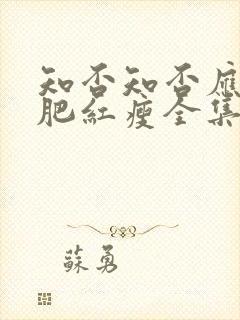 知否知否應
肥紅瘦全集
蘇勇